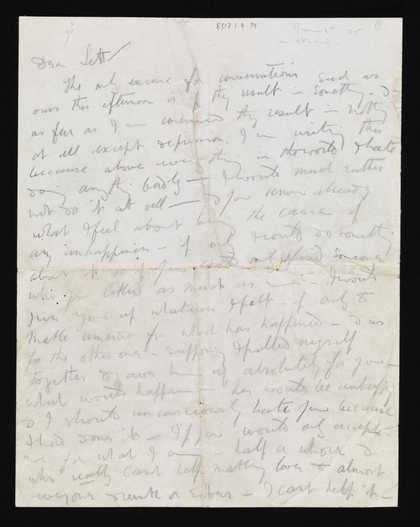 Dear Sett
The only excuse for conversations such as
ours this afternoon is if they result in something - &
as far as I am concerned they result in nothing
at all except depression. I am writing this
because above everything in the world I hate
doing anything badly - I would much rather
not do it at all - & you know already
what I feel about the cause of
any unhappiness - if only I could do something
about it - if you could only find someone
who you liked as much as - I would
give you up whatever I felt - if only to
make amends for what has happened - & as
for the other one - supposing I pulled myself
together & gave him up absolutely for you -
what would happen - he would be unhappy
& I should unconsciously hate you because
I had done it - If you would only accept
me for what I am half a whore &
who really can't help making love to almost
anyone drunk or sober - I can't help it -